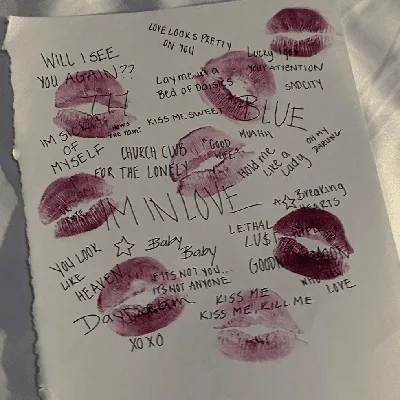 LOVE LOOKS PRETTY
ON YOU
WILL I SEE
YOU AGAIN??
LUCKY
YOUR ATTENTION
SADCITY
Lay me in a
Bed of Daisies
KISS ME SWEET
BLUE
IM SICK
OF
MYSELF
MUAHH
OH MY
DARLING
CHURCH CLUB
FOR THE LONELY
"GOOD
Hold me
Like a
Lady
IM IN LOVE
Breaking
HEARTS
LETHAL
LUST
YOU LOOK
LIKE
HEAVEN
Baby
Baby
IF ITS NOT YOU...
ITS NOT ANYONE
GOOD
LOVE
Daydream
KISS ME
KISS ME, KILL ME
XOXO